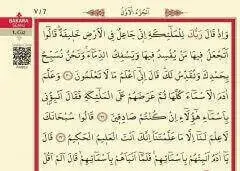 BAKARA
SÛRESİ
1.Cüz
اَلْجُزْءُ الْاَوَّلُ
وَاِذْ قَالَ رَبُّكَ لِلْمَلٰٓئِكَةِ اِنّ۪ي جَاعِلٌ فِي الْاَرْضِ خَل۪يفَةً قَالُٓوا
اَتَجْعَلُ ف۪يهَا مَنْ يُفْسِدُ ف۪يهَا وَيَسْفِكُ الدِّمَٓاءَ وَنَحْنُ نُسَبِّحُ
بِحَمْدِكَ وَنُقَدِّسُ لَكَ قَالَ اِنّ۪ٓي اَعْلَمُ مَا لَا تَعْلَمُونَ ﴿٣٠﴾ وَعَلَّمَ
اٰدَمَ الْاَسْمَٓاءَ كُلَّهَا ثُمَّ عَرَضَهُمْ عَلَى الْمَلٰٓئِكَةِ فَقَالَ اَنْبِؤُ۫ن۪ي
بِاَسْمَٓاءِ هٰٓؤُ۬لَٓاءِ اِنْ كُنْتُمْ صَادِق۪ينَ ﴿٣١﴾ قَالُوا سُبْحَانَكَ
لَا عِلْمَ لَنَٓا اِلَّا مَا عَلَّمْتَنَا اِنَّكَ اَنْتَ الْعَل۪يمُ الْحَك۪يمُ ﴿٣٢﴾ قَالَ
يَٓا اٰدَمُ اَنْبِئْهُمْ بِاَسْمَٓائِهِمْ فَلَمَّٓا اَنْبَاَهُمْ بِاَسْمَٓائِهِمْ قَالَ اَلَمْ اَقُلْ